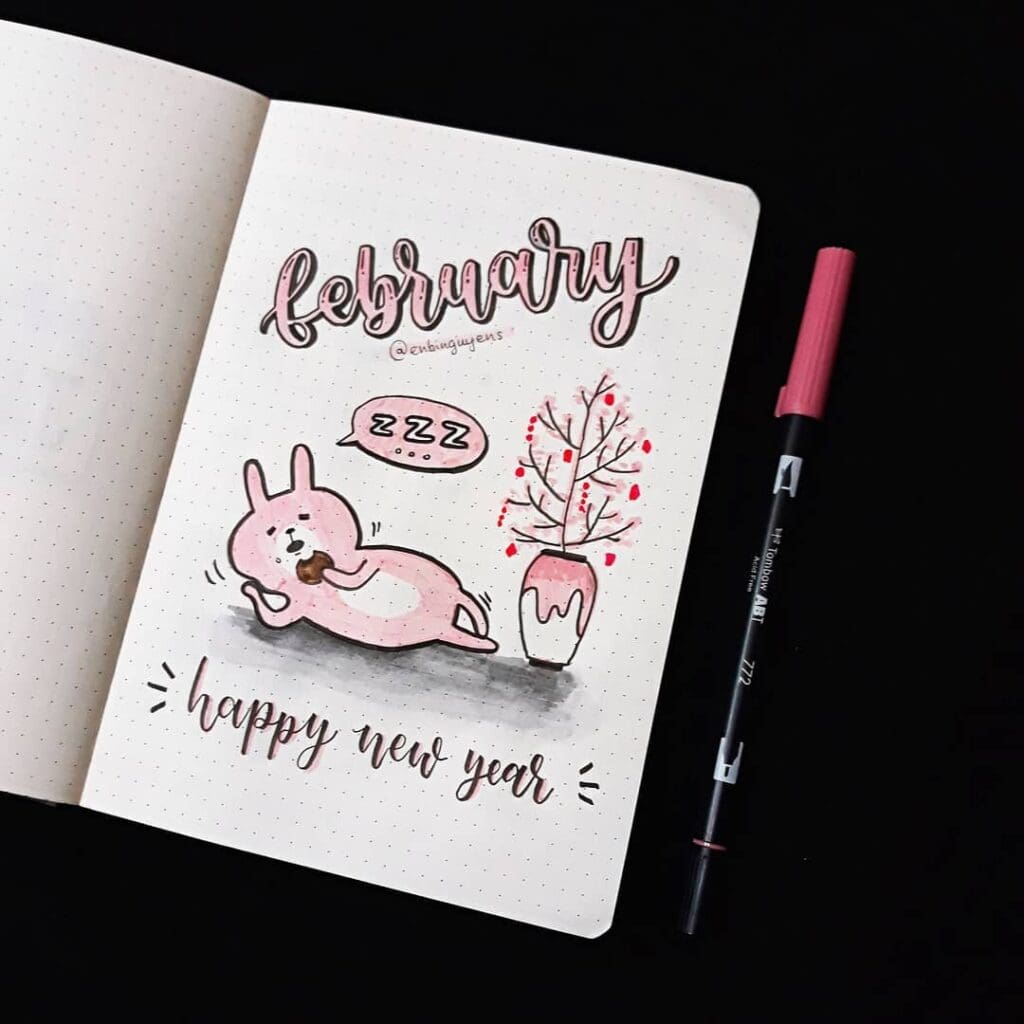 february
@enbinguyens
zzz
...
happy new year
Tombow ABT
Acid Free
772